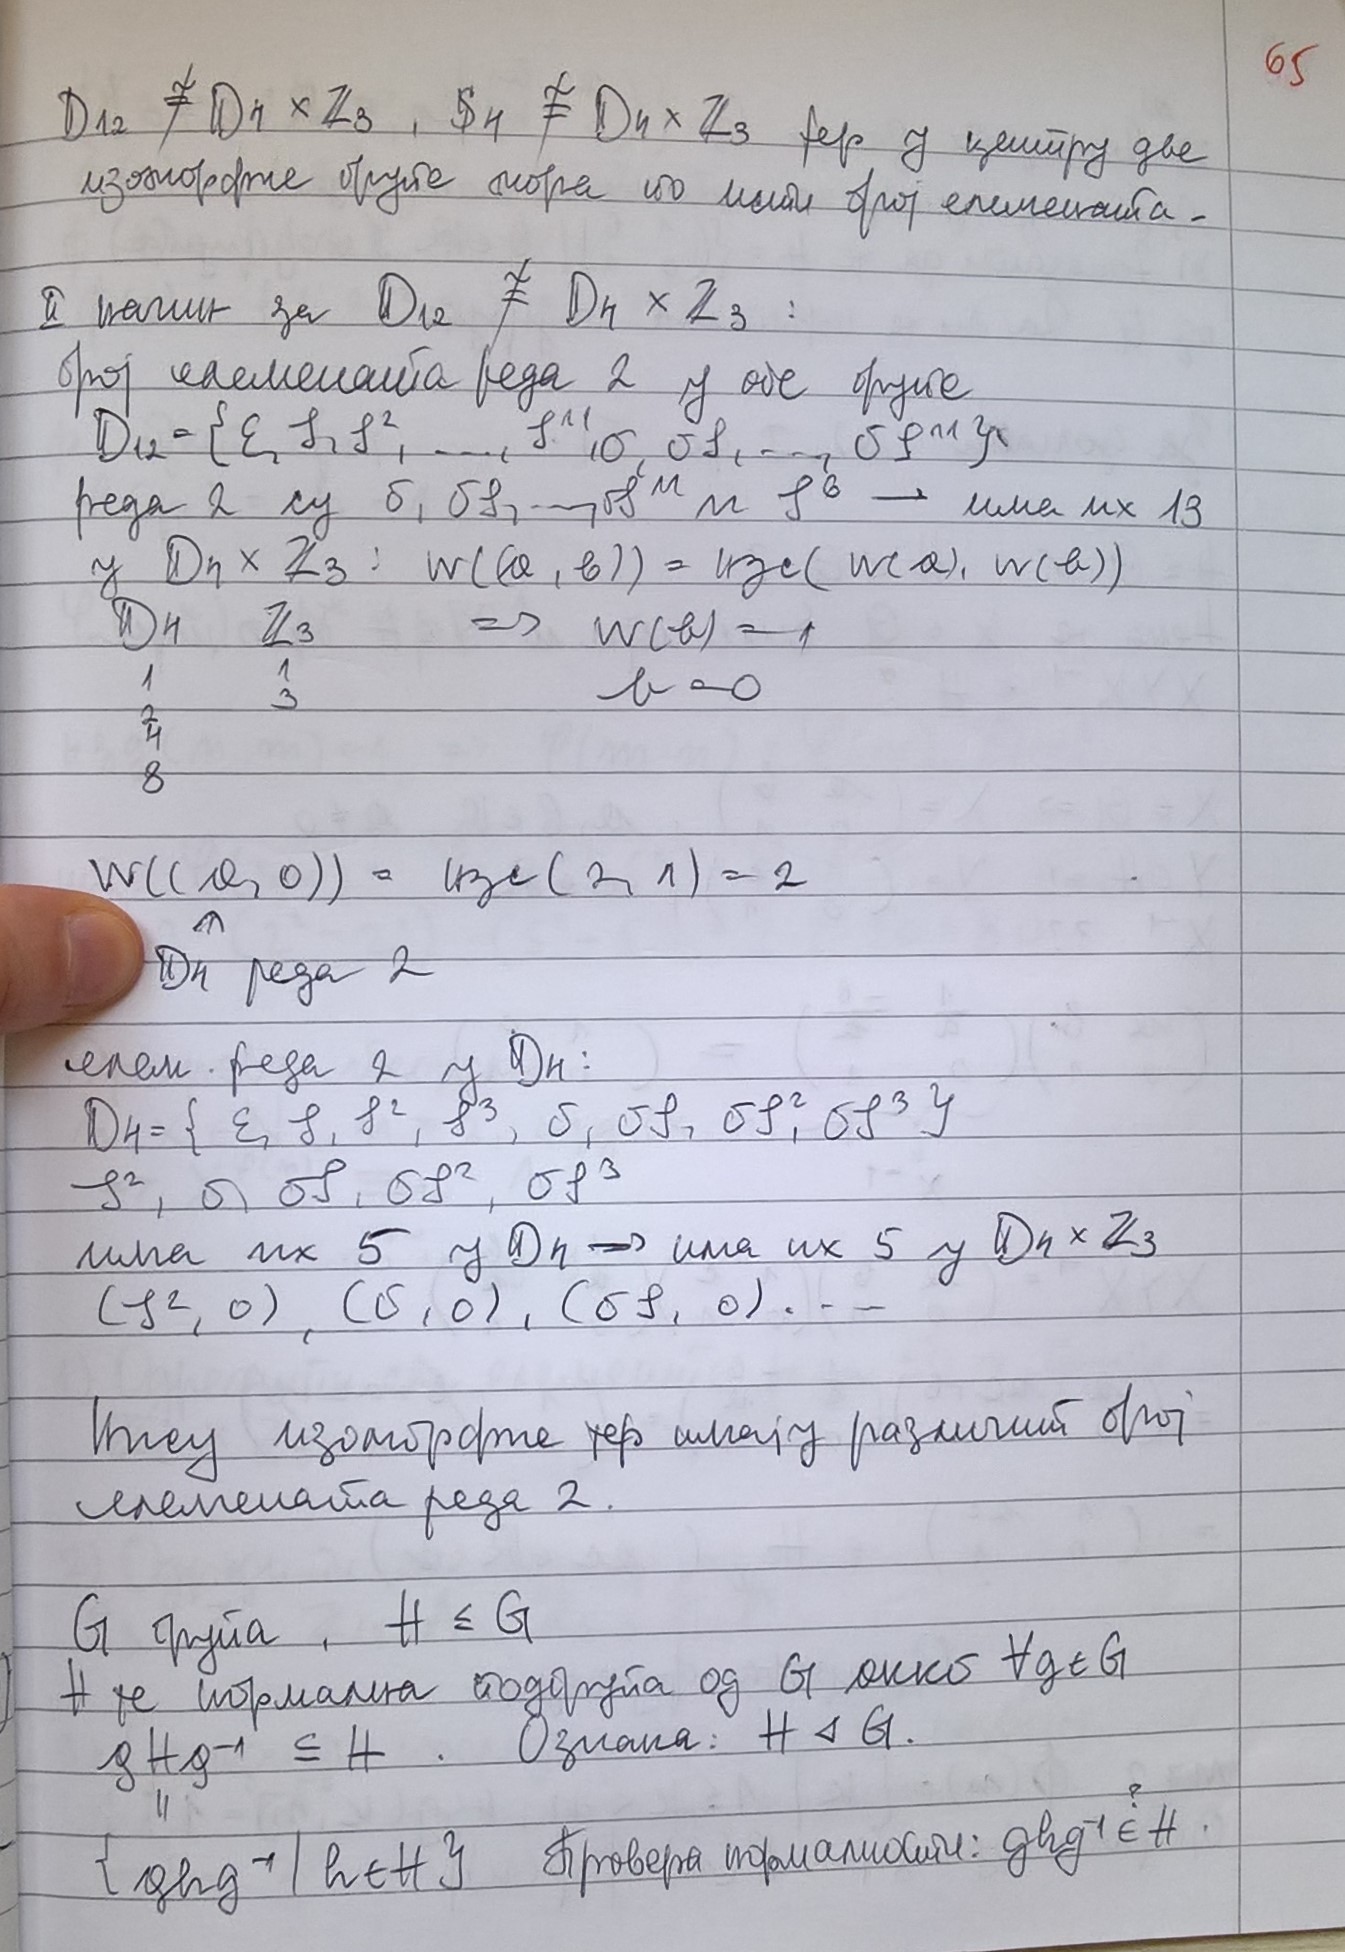 65
D₁₂ ≇ D₄ × ℤ₃ , S₄ ≇ D₄ × ℤ₃ јер у центру две
изоморфне групе мора исти број елемената.
II начин за D₁₂ ≇ D₄ × ℤ₃ :
број елемената реда 2 у обе групе
D₁₂ = {ε, ρ, ρ², ..., ρ¹¹, σ, σρ, ..., σρ¹¹}
реда 2 су σ, σρ, ..., σρ¹¹ и ρ⁶ → има их 13
у D₄ × ℤ₃ : w((a, b)) = нзс(w(a), w(b))
D₄ ℤ₃ => w(b) = 1
1 1 b = 0
2 3
4
8
w((a, 0)) = нзс(2, 1) = 2
↑
D₄ реда 2
елем. реда 2 у D₄:
D₄ = { ε, ρ, ρ², ρ³, σ, σρ, σρ², σρ³ }
ρ², σ, σρ, σρ², σρ³
има их 5 у D₄ => има их 5 у D₄ × ℤ₃
(ρ², 0), (σ, 0), (σρ, 0) ...
Нису изоморфне јер имају различит број
елемената реда 2.
G група , H ≤ G
H је нормална подгрупа од G акко ∀g ∈ G
gHg⁻¹ ⊆ H . Ознака: H ⊲ G.
=
{ghg⁻¹ | h ∈ H} Провера нормалности: ghg⁻¹ ∈? H .